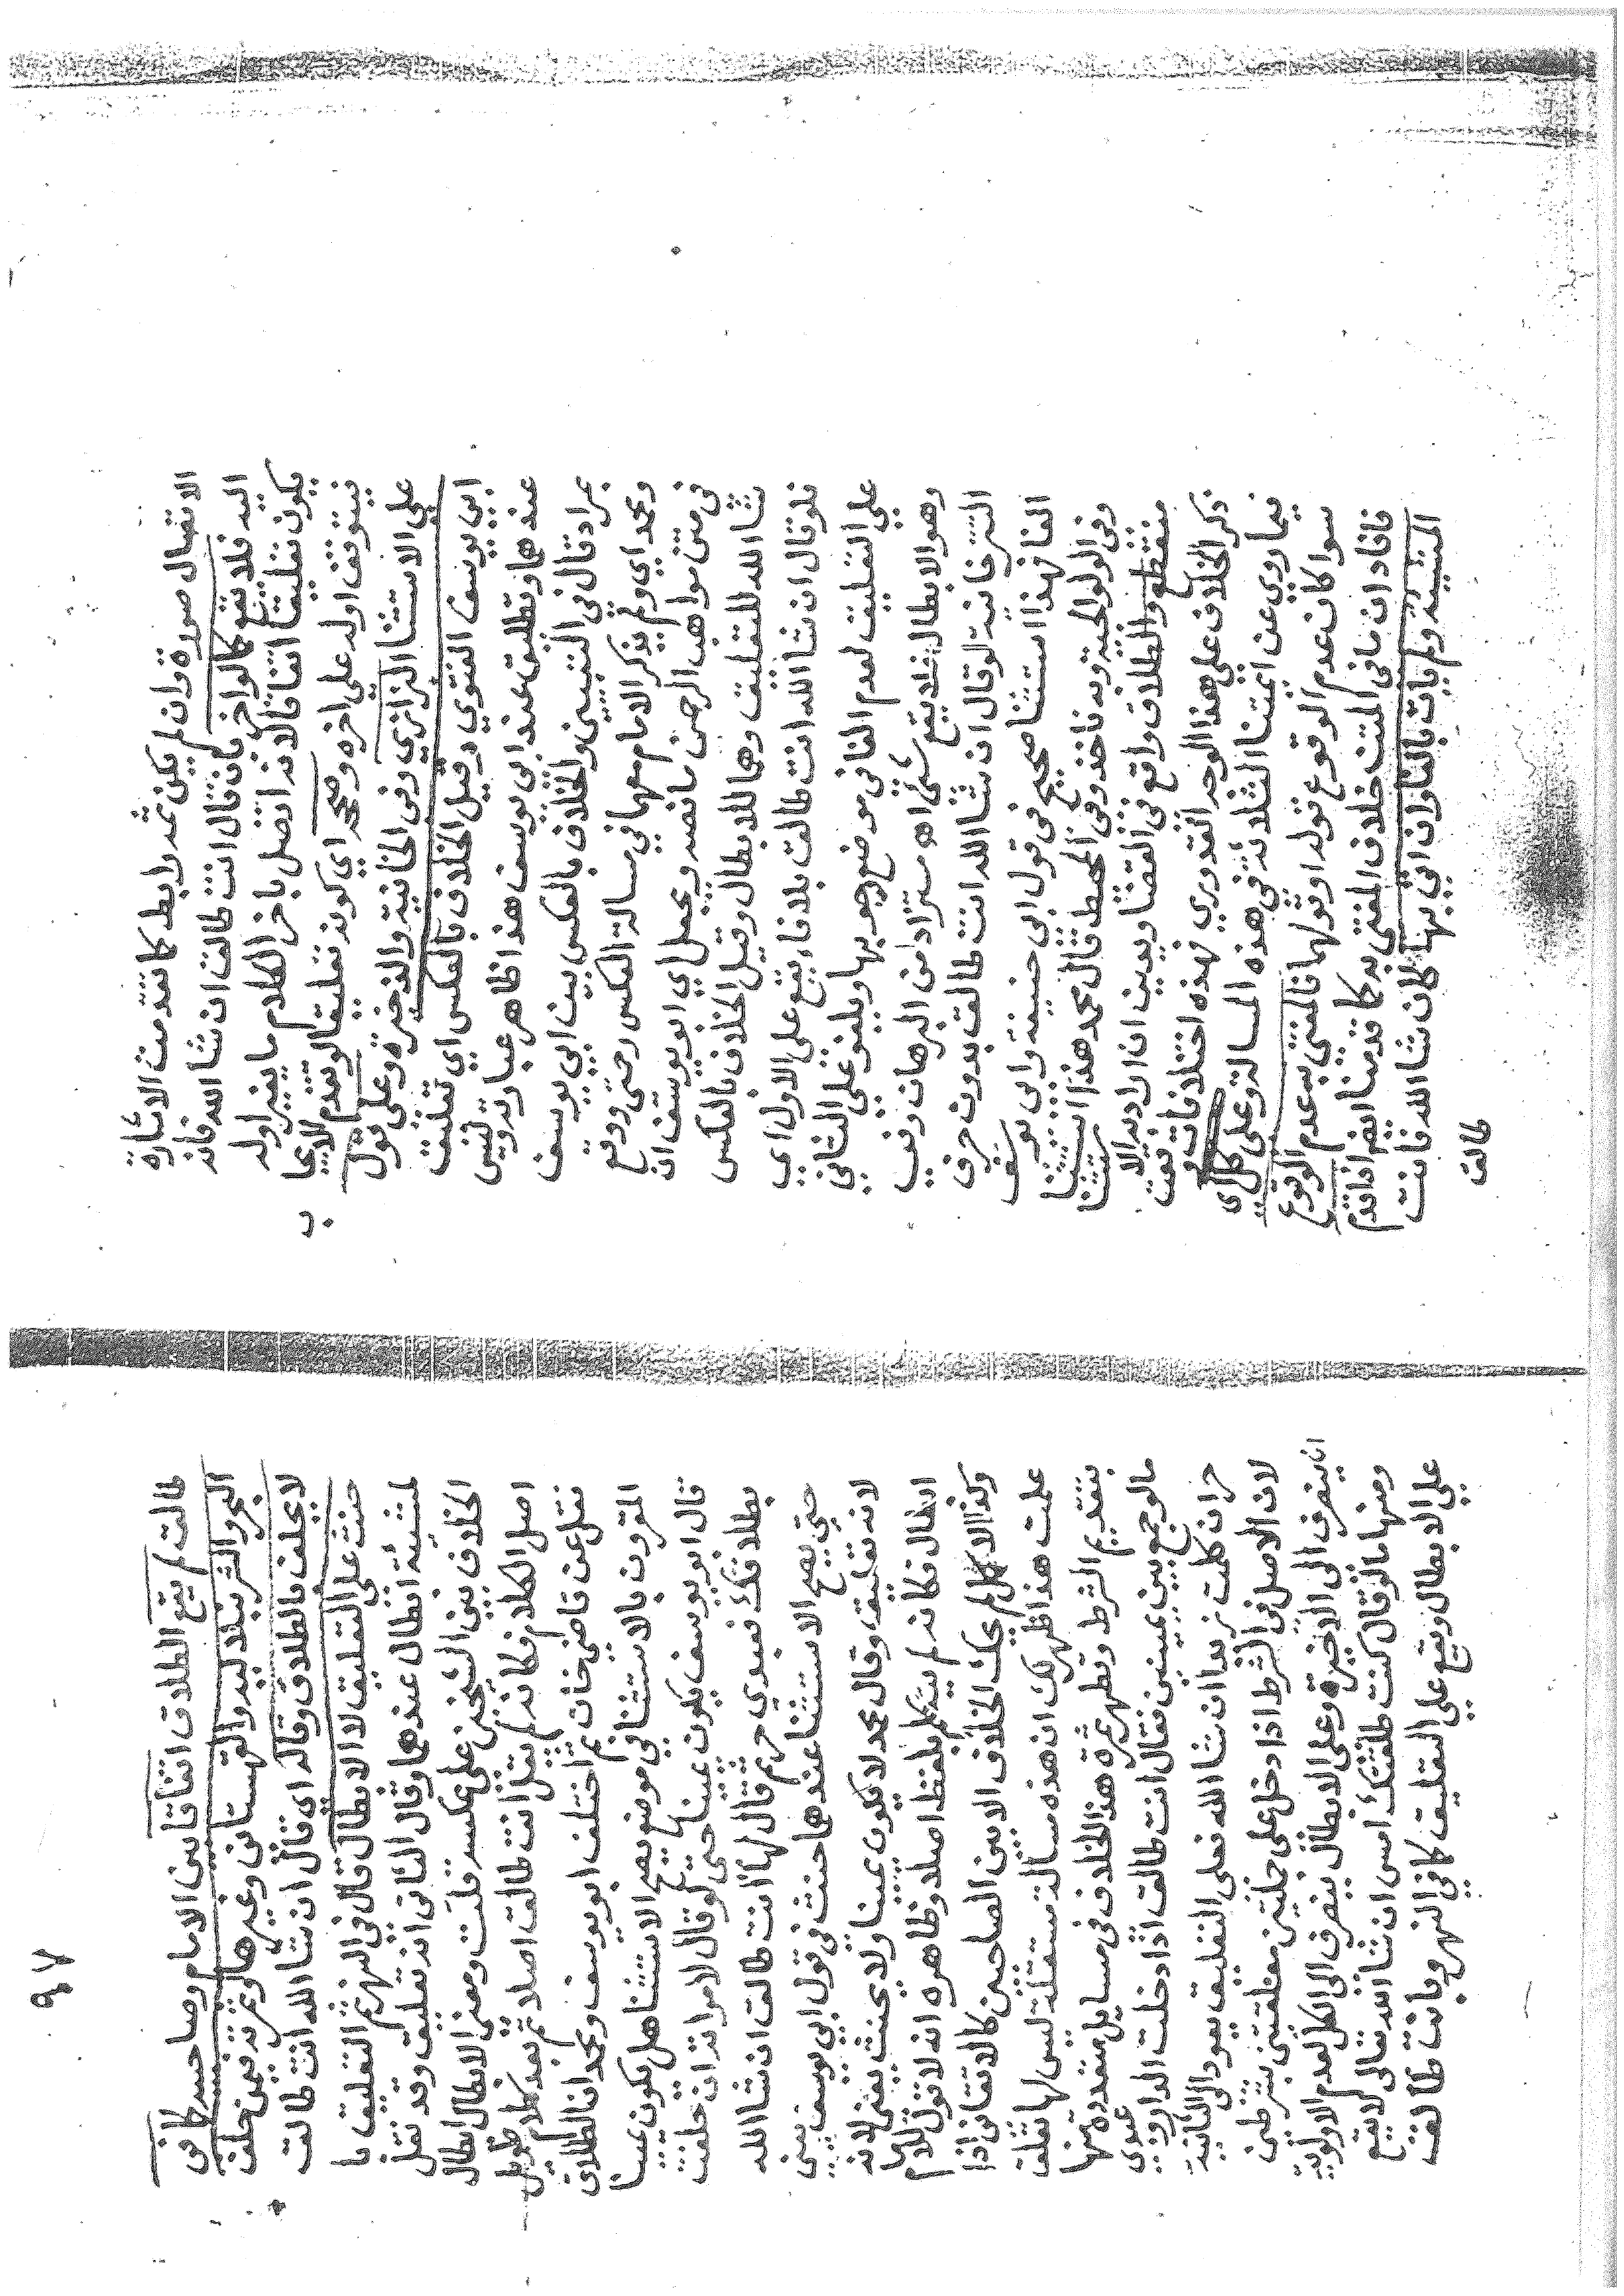 الاتصال صورة وان لم يكن ثمه رابط كما تقدمت الاشارة
اليه فلا يقع كالواخر بان قال انت طالق ان شا الله فانه
يكون تعليقا اتفاقا لانه اتصل باخر الكلام ما يغير اوله
فيتوقف اوله على اخره وصححه اي كونه تعليقا لو تقدم للايجا
على الاستثنا البزازي وفى الخانية والذخيرة وعلى قول
ابي يوسف الفتوي وقيل الخلاف بالعكس اي تعليق
عندهما وتطليق عند ابى يوسف هذا ظاهر عبارته وليس
بمراد قال في التبيين والخلاف بالعكس بين ابي يوسف
ومحمد اي ولم يذكر الامام معهما في مسالة العكس رحمتى ووقع
في متن مواهب الرحمن ما نصه ويجعل اي ابو يوسف ان
شا الله للتعليق وهما للابطال وقيل الخلاف بالعكس
فلو قال ان شا الله انت طالق بلا فا، يقع على الاول اي
على التعليق لعدم الفا في موضع وجوبها ويلغو على الثاني
وهو الابطال فلا يقع شي اهو ستزاد من البرهان وفيـ
الشرخانية لو قال ان شا الله انت طالق بدون حرف
الفا فهذا استثنا صحيح فى قول ابى حنيفة وابى يوسف
وفى الولوالجية وبه ناخذ وفى المحيط قال محمد هذا استثنا
منقطع والطلاق واقع في القضا ويدين ان اراد به الا ستثنا
ذكر الخلاف على هذا الوجه القدوري فهذه اختلافات وقعت
فيما روي عن ايمتنا الثلاثة في هذه المسالة وعلى كل ى
سوا كان عدم الوقوع قوله او قولهما فالمفتي به عدم الوقوع
فافاد ان ما فى المتن خلاف المفتي به كما قدمنا ايضا فاذا قدم
المشيئة ولم يات بالفا وان اتى بها كان شا الله فانت
طالق
٩٧
طالق لم يقع الطلاق اتفاقا بين الامام وصاحبيه كما فى
البحر والشرنبلاليه والقهستاني وغيرها وثمرته فيمن حلف
لا يحلف بالطلاق وقاله اى قال ان شا الله انت طالق
حنث على التعليق لا الابطال قال فى النهر ثم التعليق با
لمشيئة ابطال عندهما وقال الثاني انه تعليق وقد نقل
الخلاف بين الشيخين على عكسه قلت ومعنى الابطال ابطال
اصل الكلام فكانه لم يقل انت طالق اصلا ثم بعد كلام طويل
نقل عن قاضي خان ثم اختلف ابو يوسف ومحمد ان الطلاق
المقرون بالاستثنا في موضع يصح الاستثنا هل يكون يمينا
قال ابو يوسف يكون يمينا حتى لو قال لامراته ان حلفت
بطلاقك فعبدي حر ثم قال لها انت طالق ان شا الله
حتى يصح الاستثنا عندهما حنث في قول ابي يوسف يعنى
لانه تعليق، وقال محمد لا يكون يمينا ولا يحنث يعنى لانه
ابطال فكانه لم يتكلم بلفظ اصلا وظاهره انه لا قول للامام
وكذا لا كل لم يحك الخلاف الا بين الصاحبين كالاتقانى اذا
علمت هذا ظهر لك ان هذه مسالة مستقلة ليس لها تعلق
بتقديم الشرط وتظهر ثمرة هذا الخلاف في مسايل متعددة منها
ما لو جمع بين يمينين فقال انت طالق اذا دخلت الدار وعبدى
حر ان كلمت زيدا ان شا الله فعلى التعليق يعود الى الثانية
لان الاصل فى الشرط اذا دخل على جملتين معلقتين بشرطين
ان ينصرف الى الاخيرة وعلى الابطال ينصرف الى الكل لعدم الاولوية
ومنها ما لو قال كنت طلقتك امس ان شا الله تعالى لا يقع
على الابطال ويقع على التعليق كما في النهر وبانت طالق